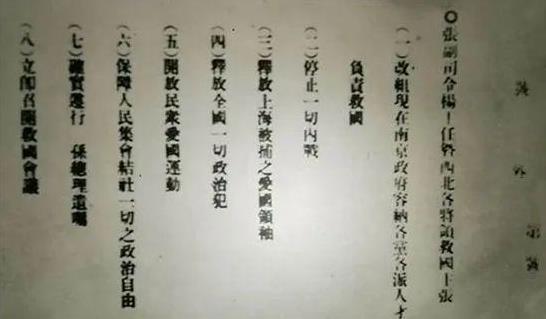 號外 第 號
○張副司令楊主任暨西北各將領救國主張
(一)改組現在南京政府容納各黨各派人才
負責救國
(二)停止一切內戰
(三)釋放上海被捕之愛國領袖
(四)釋放全國一切政治犯
(五)開放民衆愛國運動
(六)保障人民集會結社一切之政治自由
(七)確實遵行 孫總理遺囑
(八)立卽召開救國會議